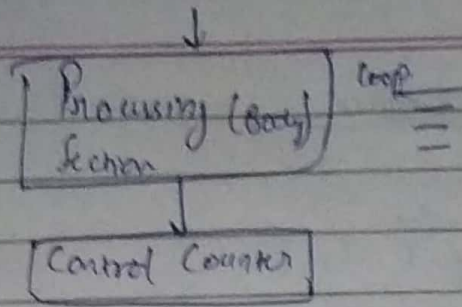 Processing (Body)
Section
Loop
Control Counter